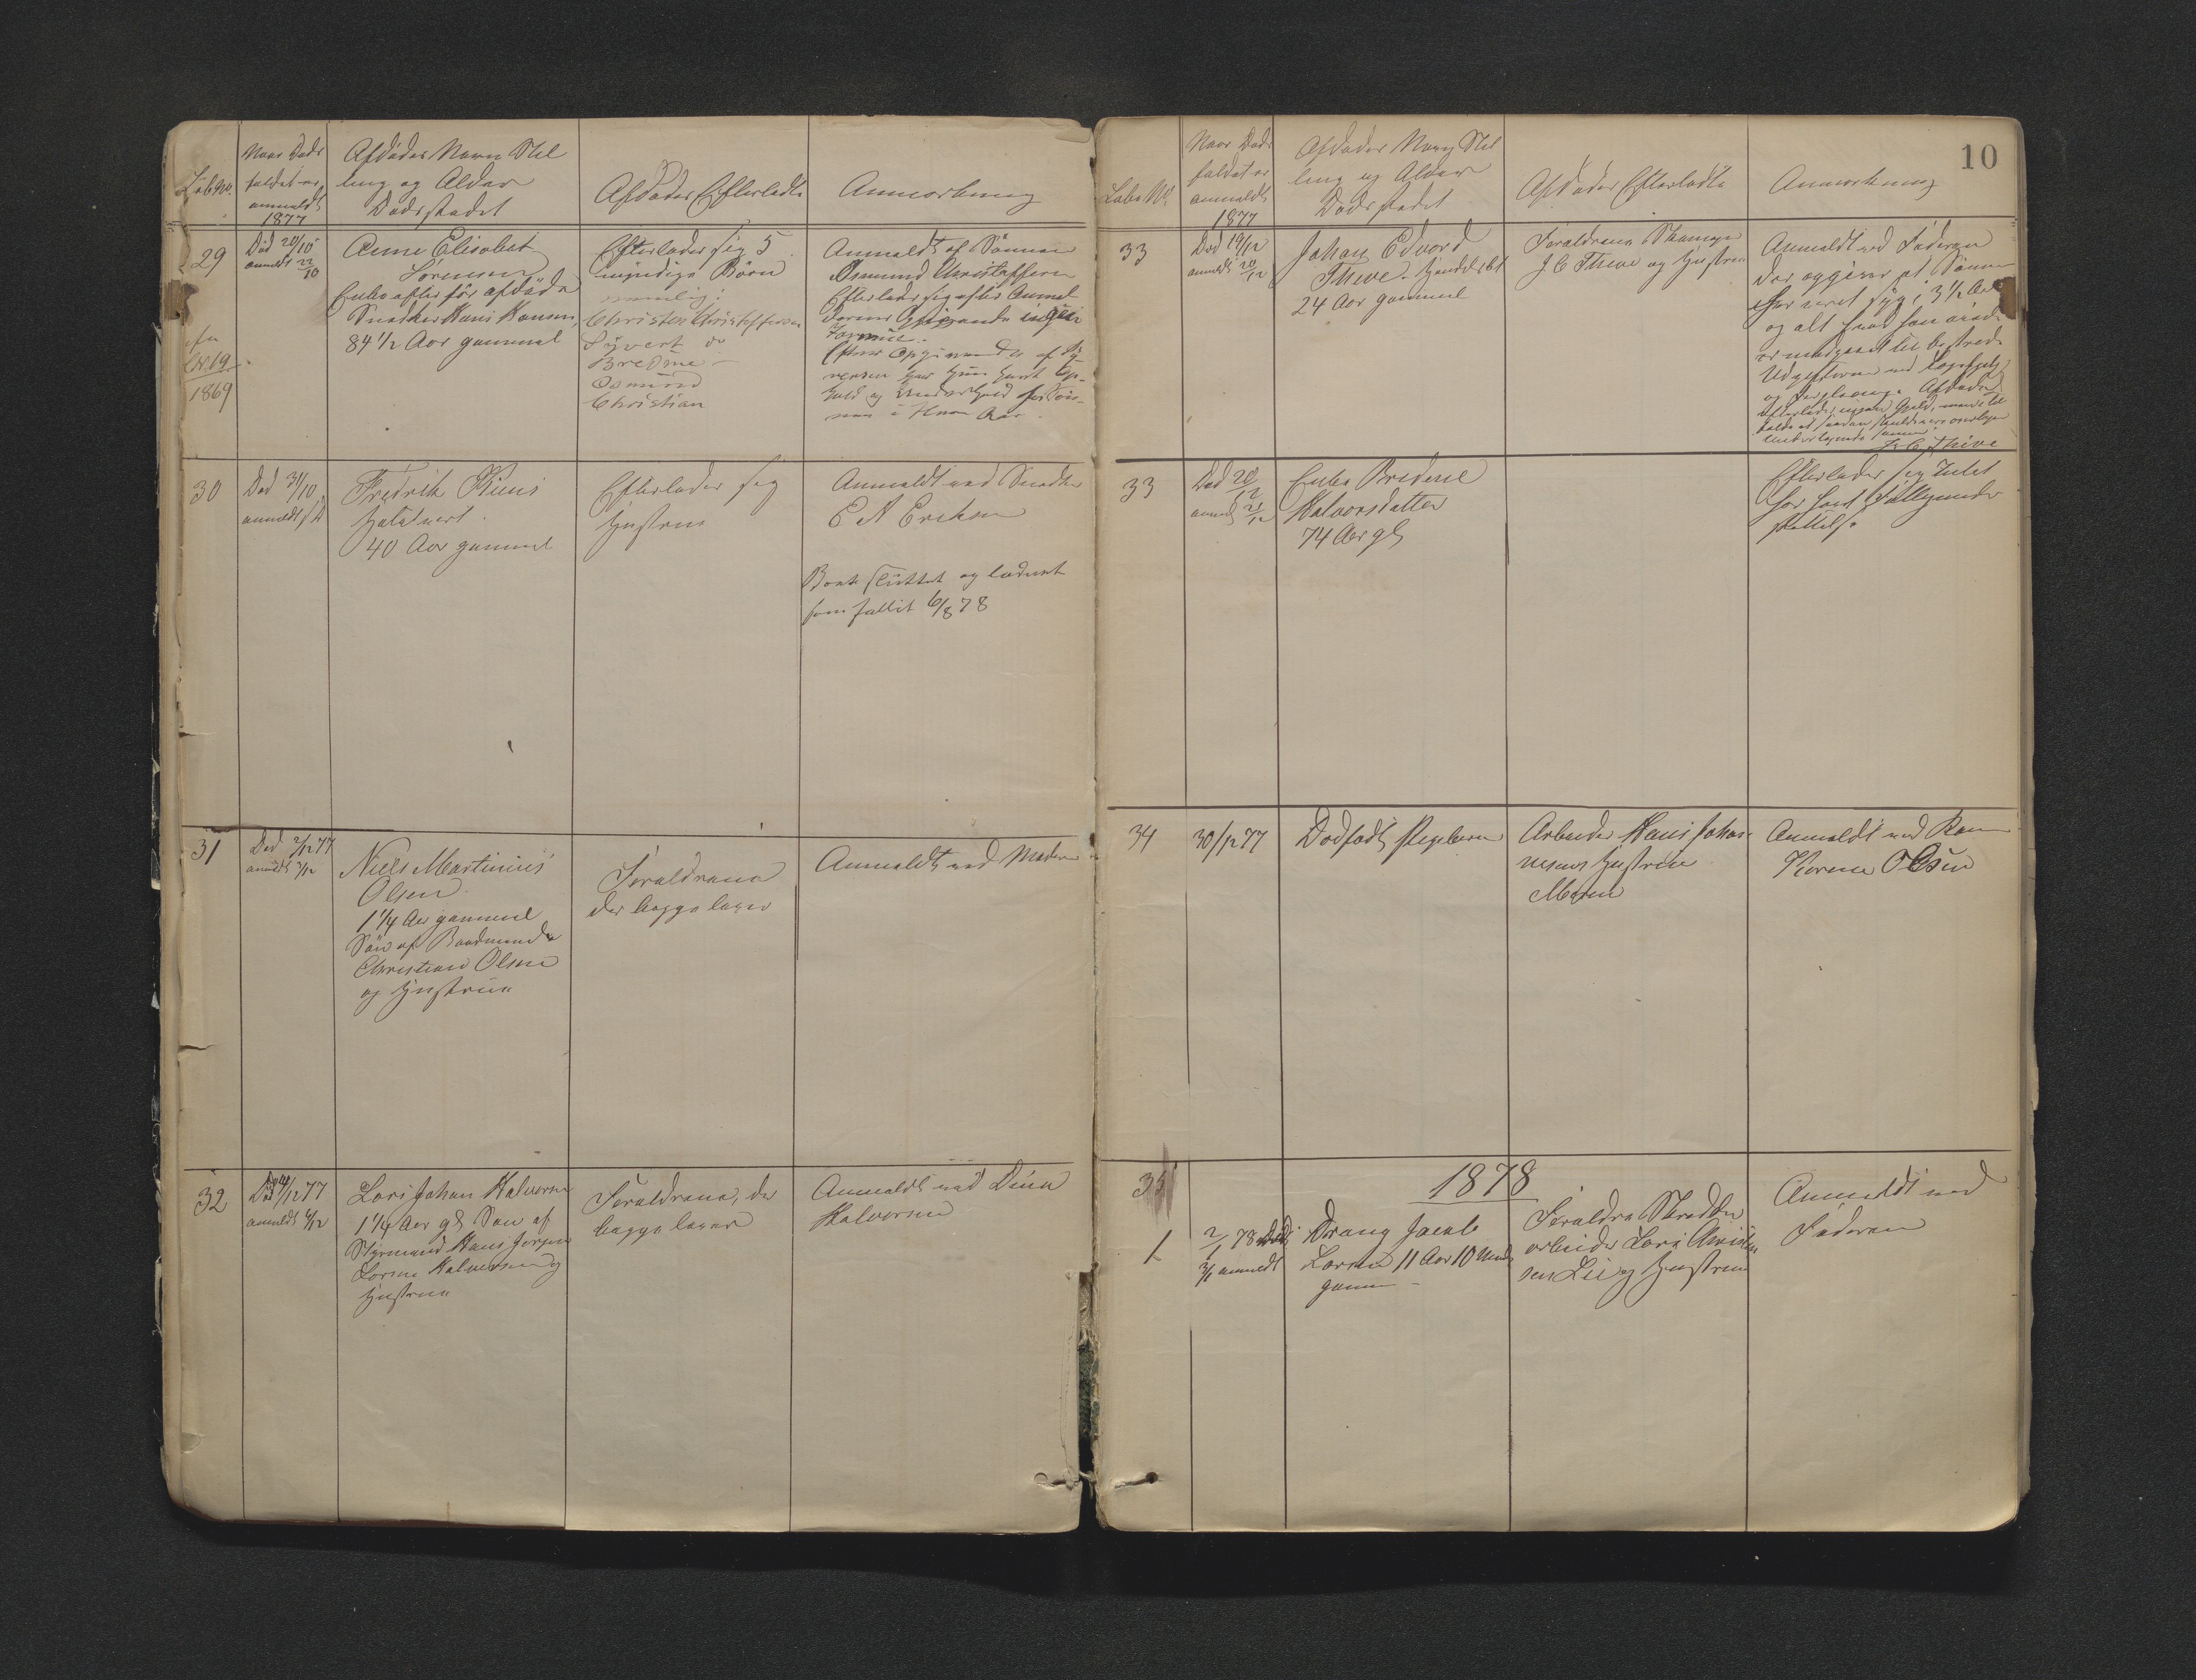 Løbe No.
Naar Døds
faldet er
anmeldt
1877
Afdødes Navn Stil
ling og Alder
Dødsstedet
Afdødes Efterladte
Anmærkning
29
Død 20/10
anmeldt 22/10
Anne Elisabet
Sørensen
Enke efter før afdøde
Snedker Hans Hansen,
84 1/2 Aar gammel
Efterlader sig 5
myndige Børn
nemlig:
Christen Christoffersen
Syvert do
Bredine —
Osmund
Christian
Anmeldt af Sønnen
Osmund Christoffersen
Efterlader sig efter Anmel
derens Opgivende ingen
Formue.
No 19
1869
30
Død 31/10
anmeldt
Fredrik Kiens
40 Aar gammel
Efterlader sig
Hustru
Anmeldt ved Snedker
E A Eriksen
Boet sluttet og
som fallit 6/8 78
31
Død 2/12 77
anmeldt 3/12
Niels Martinius
Olsen
1 1/4 Aar gammel
Søn af Baadmand
Christian Olsen
og Hustru
Forældrene
der begge lever
Anmeldt ved Moderen
32
Død 4/12 77
anmeldt 6/12
Lars Johan Halvorsen
1 1/4 Aar gl Søn af
Styrmand Hans Jørgen
Larsen Halvorsen og
Hustru
Forældrene, der
begge lever
Anmeldt ved
Halvorsen
10
Løbe No.
Naar Døds
faldet er
anmeldt
1877
Afdødes Navn Stil
ling og Alder
Dødsstedet
Afdødes Efterladte
Anmærkning
33
Død 19/12
anmeldt 20/12
Johan Edvard
Theve. Handelsbt
24 Aar gammel
Forældrene
J C Theve og Hustru
Anmeldt ved Faderen
der opgiver at Sønnen
har været syg i 3 1/2 Aar
og alt hvad han
er medgaaet til bestride
Udgifterne ved Lægehjelp
og Afdøde
efterlader ingen Gjeld,
J. C. Theve
33
Død 20/12
anmeldt 21/12
Enke Bredine
Halvorsdatter
74 Aar gl
Efterlader sig Intet
har havt Fattigunder
støttelse
34
30/12 77
Dødfødt Pigebarn
Arbeider Hans Johan
nesens Hustru
Maren
Anmeldt ved Kone
Karen Olsen
35
1878
1
2/1 78 død
3/1 anmeldt
Dreng Jacob
Larsen 11 Aar 10 Mdr
gammel
Forældre Skrædder
arbeider Lars Christen
sen Lie og Hustru
Anmeldt ved
Faderen